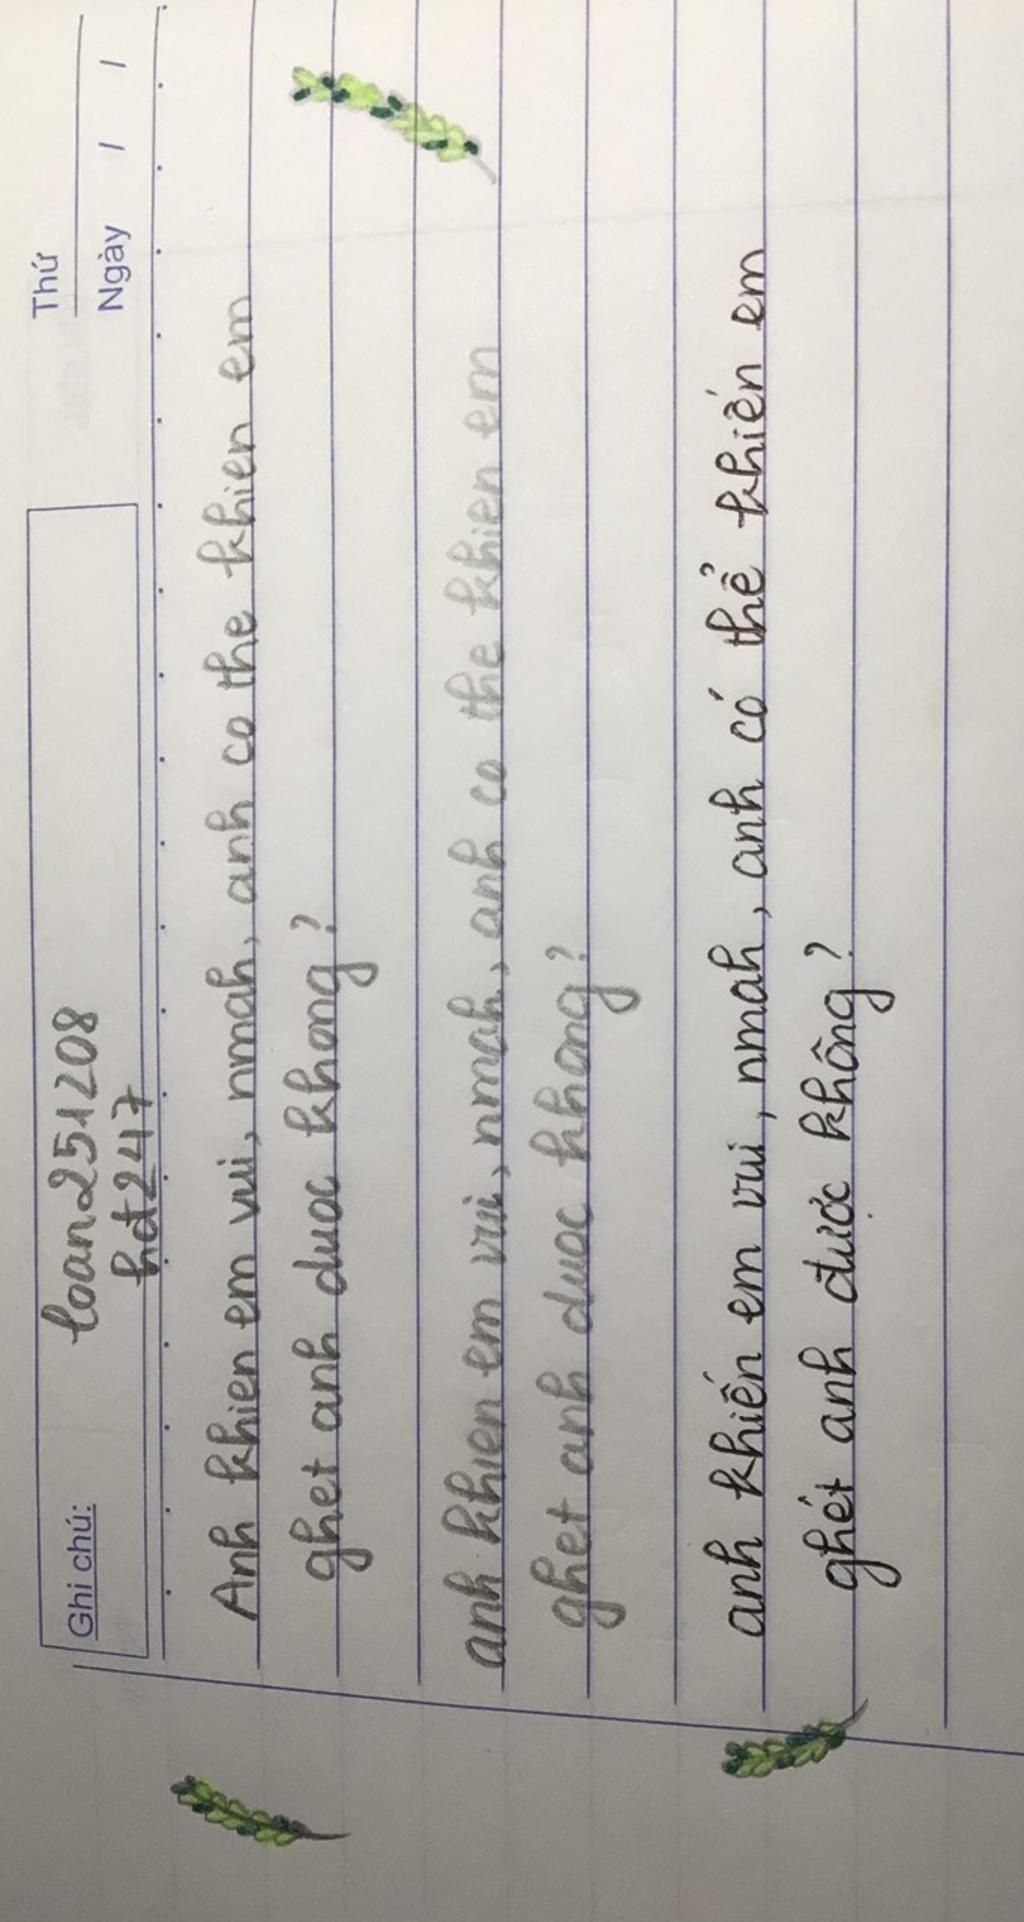 Thứ
Ngày / /
Ghi chú:
loan251208
het247
Anh khien em vui, nmah, anh co the khien em
ghet anh duoc khong?
anh khien em vui, nmah, anh co the khien em
ghet anh duoc khong?
anh khiến em vui, nmah, anh có thể khiến em
ghét anh được không?